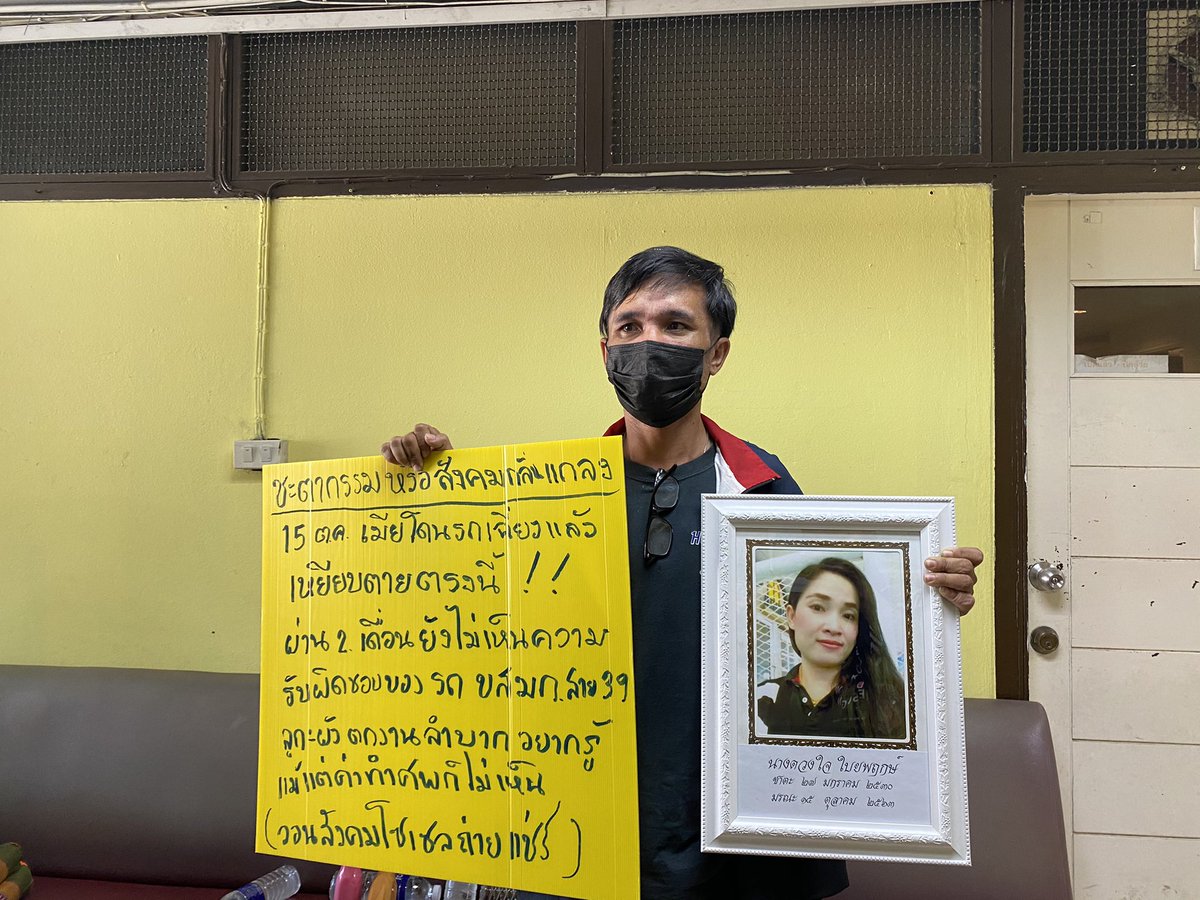 ชะตากรรม หรือ สังคมกลั่นแกลง
15 ต.ค. เมียโดนรถเฉี่ยวแล้ว
เหยียบตายตรงนี้ !!
ผ่าน 2 เดือน ยังไม่เห็นความ
รับผิดชอบของ รถ ขสมก. สาย 39
ลูก-ผัว ตกงาน ลำบาก อยากรู้
แม้แต่ค่าทำศพก็ไม่เห็น
(วอนสังคมโซเซลถ่ายแชร์)
นางดวงใจ ใบยพฤกษ์
ชาตะ ๒๗ มกราคม ๒๕๓๐
มรณะ ๑๕ ตุลาคม ๒๕๖๓